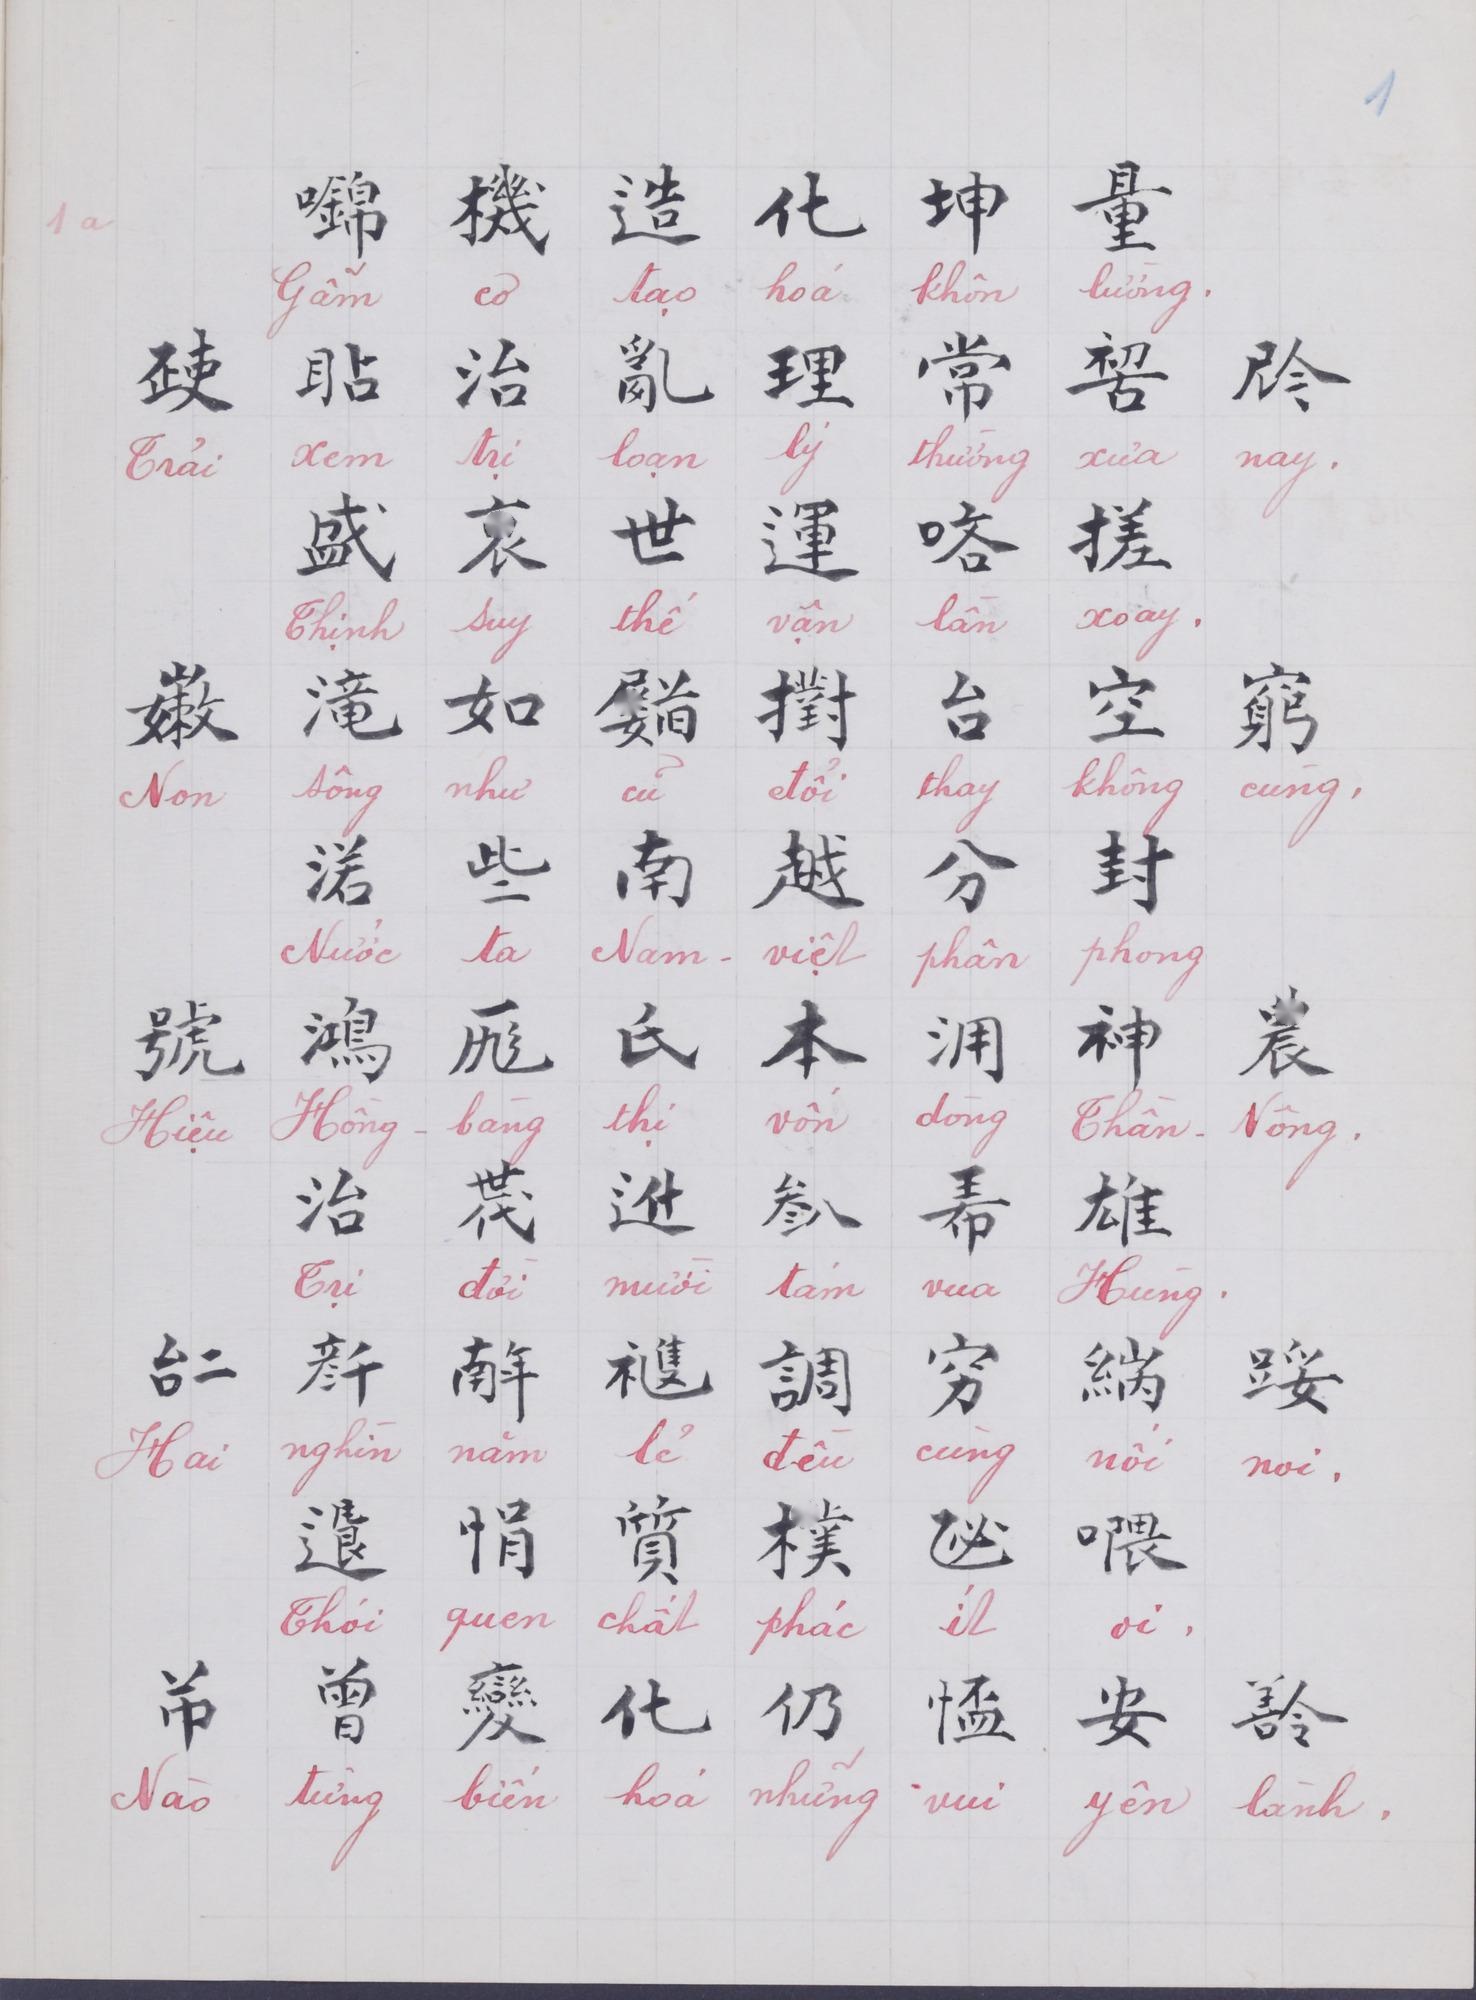 1
1a
㘌 機 造 化 坤 量
Gẫm cơ tạo hoá khôn lường.
𣦰 貼 治 亂 理 常 𠸗 𫢩
Trải xem trị loạn lý thường xưa nay.
盛 衰 世 運 㗉 搓
Thịnh suy thế vận lần xoay.
嫩 滝 如 𡳰 擳 台 空 窮
Non sông như cũ đổi thay không cùng,
渃 些 南 越 分 封
Nước ta Nam - việt phân phong
號 鴻 厖 氏 本 泂 神 農
Hiệu Hồng - bàng thị vốn dòng Thần - Nông.
治 𠁀 𨒒 𠔭 𢂜 雄
Trị đời mười tám vua Hùng.
𠄩 𠦳 𢆥 𥛭 調 穷 𦀼 跺
Hai nghìn năm lẻ đều cùng nối noi.
𨓐 悁 質 樸 𠃣 喂
Thói quen chất phác ít ơi,
芇 曾 變 化 仍 𢝙 安 𫅜
Nào từng biến hoá những vui yên lành.